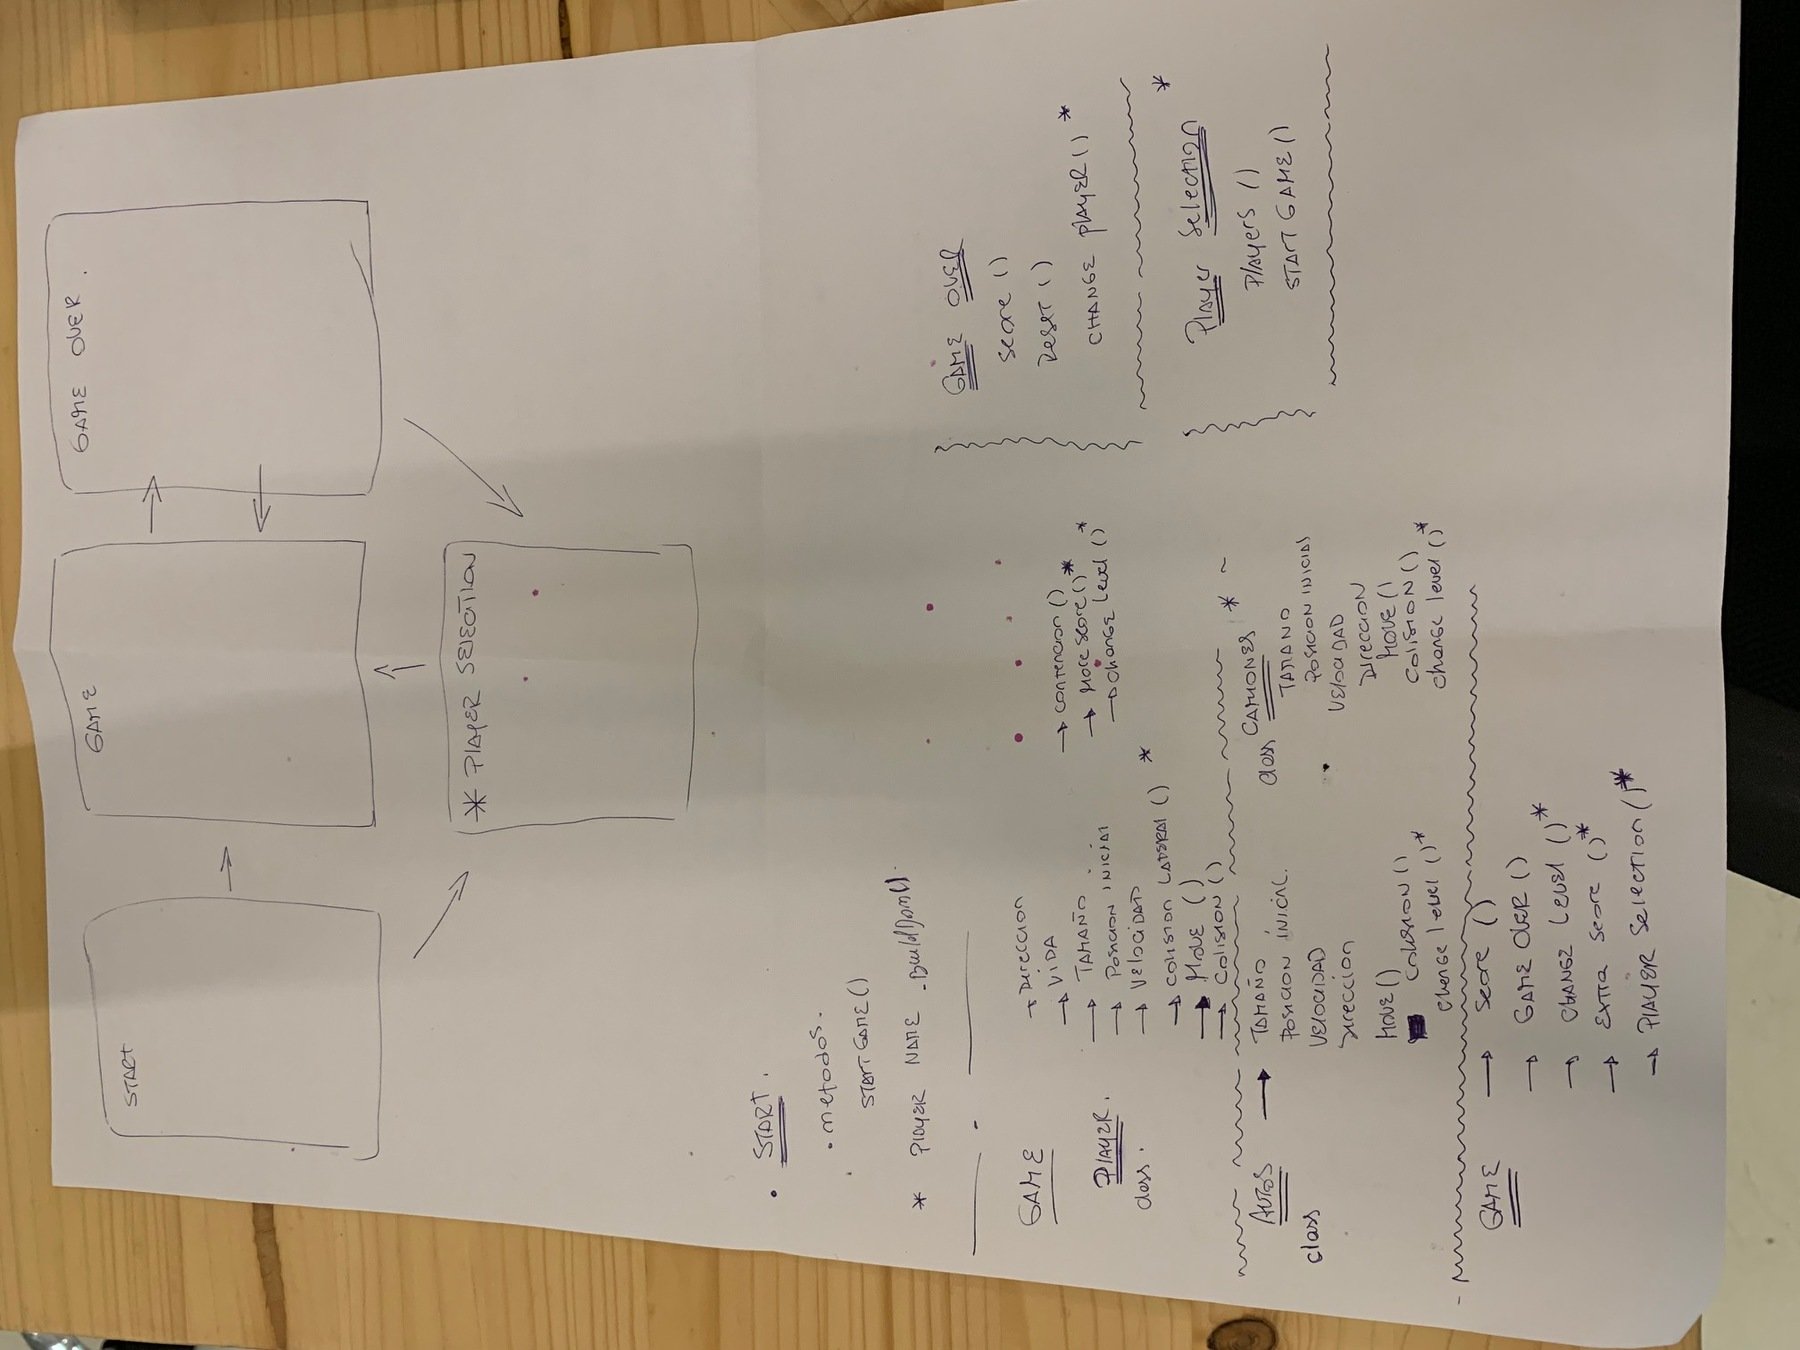 START
GAME
GAME OVER.
* PLAYER SELECTION
• START.
• metodos.
START GAME()
* PlayER NAME
GAME
PlAYER.
class.
→ Direccion
→ VIDA
→ TAMAÑO
→ Posicion inicial
→ Velocidad
→ colision LATERAl () *
→ MOVE ()
→ Colision ()
→ contencion ()
→ More score () *
→ change level () *
AUTOS →
class
TAMAÑO
Posicion inicial.
VElocidAD
Direccion
MOVE ()
Colision ()
change level () *
class CAMIONES *
TAMANO
Posicion inicial
VElociDAD
Direccion
MOVE ()
Colision ()
change level () *
GAME
→ Score ()
→ GAME OVER ()
→ CHANGE LEVEl () *
→ Extra Score () *
→ PlAYER SElection () *
GAME OVER
Score ()
Reset ()
CHANGE PlAYER () *
PlAyer Selection *
PlAyers ()
START GAME ()